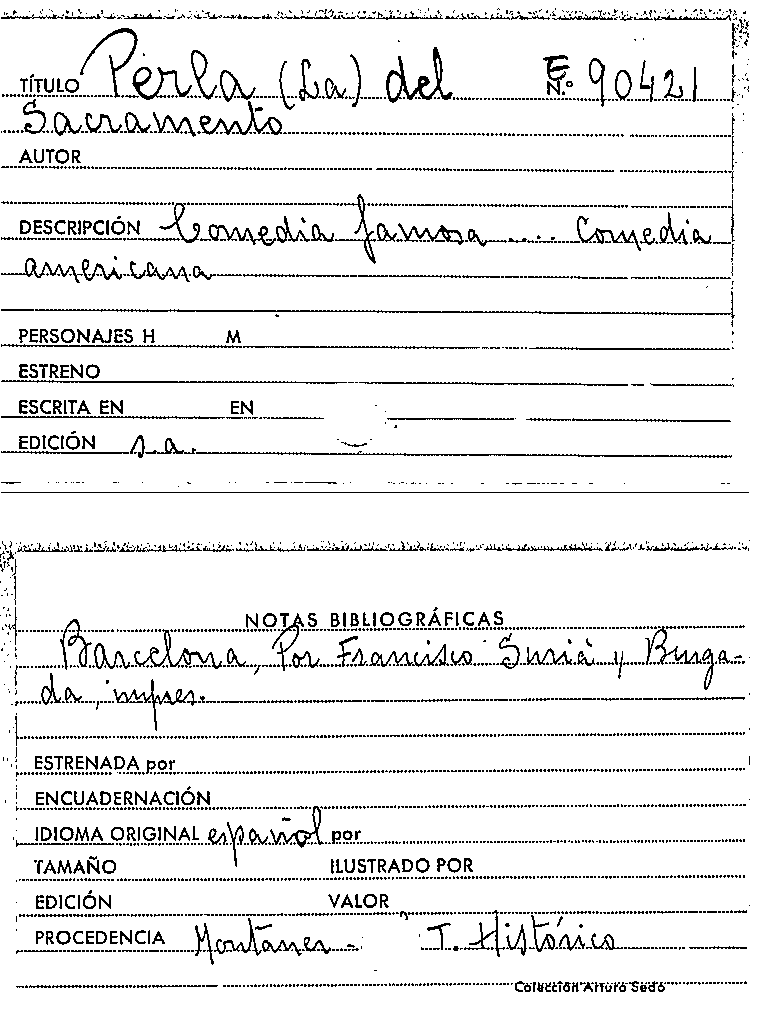 TÍTULO Perla (La) del E N.º 90421
Sacramento
AUTOR
DESCRIPCIÓN Comedia famosa .... Comedia
americana
PERSONAJES H M
ESTRENO
ESCRITA EN EN
EDICIÓN s.a.
NOTAS BIBLIOGRÁFICAS
Barcelona, Por Francisco Suriá y Burga-
da, impres.
ESTRENADA por
ENCUADERNACIÓN
IDIOMA ORIGINAL español por
TAMAÑO ILUSTRADO POR
EDICIÓN VALOR
PROCEDENCIA Montaner - T. Histórico
Colección Arturo Sedó